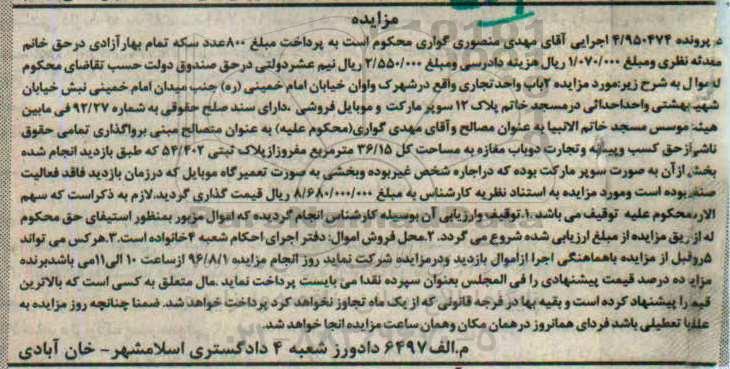 مزایده
پرونده ۴/۹۵۰۴۷۴ اجرایی آقای مهدی منصوری گواری محکوم است به پرداخت مبلغ ۸۰۰عدد سکه تمام بهارآزادی درحق خانم
نظری ومبلغ ۱/۰۷۰/۰۰۰ ریال هزینه دادرسی ومبلغ ۲/۵۵۰/۰۰۰ ریال نیم عشردولتی درحق صندوق دولت حسب تقاضای محکوم
به شرح زیر:مورد مزایده ۲باب واحدتجاری واقع درشهرک واوان خیابان امام خمینی (ره) جنب میدان امام خمینی نبش خیابان
شهید بهشتی واحداحداثی درمسجد خاتم پلاک ۱۲ سوپر مارکت و موبایل فروشی ،دارای سند صلح حقوقی به شماره ۹۲/۲۷ فی مابین
هیئت موسس مسجد خاتم الانبیا به عنوان مصالح وآقای مهدی گواری(محکوم علیه) به عنوان متصالح مبنی برواگذاری تمامی حقوق
ناشی ازحق کسب وپیشه وتجارت دوباب مغازه به مساحت کل ۳۶/۱۵ مترمربع مفروزازپلاک ثبتی ۵۴/۴۰۲ که طبق بازدید انجام شده
بخشی ازآن به صورت سوپر مارکت بوده که دراجاره شخص غیربوده وبخشی به صورت تعمیرگاه موبایل که درزمان بازدید فاقد فعالیت
صنفی بوده است ومورد مزایده به استناد نظریه کارشناس به مبلغ ۸/۶۸۰/۰۰۰/۰۰۰ ریال قیمت گذاری گردید.لازم به ذکراست که سهم
محکوم علیه توقیف می باشد.۱.توقیف وارزیابی آن بوسیله کارشناس انجام گردیده که اموال مزبور بمنظور استیفای حق محکوم
له ازطریق مزایده از مبلغ ارزیابی شده شروع می گردد. ۲.محل فروش اموال: دفتر اجرای احکام شعبه ۴خانواده است.۳.هرکس می تواند
۵روقبل از مزایده باهماهنگی اجرا ازاموال بازدید ودرمزایده شرکت نماید روز انجام مزایده ۹۶/۸/۱ ازساعت ۱۰ الی۱۱می باشدبرنده
مزایده ده درصد قیمت پیشنهادی را فی المجلس بعنوان سپرده نقدا می بایست پرداخت نماید .مال متعلق به کسی است که بالاترین
قیمت را پیشنهاد کرده است و بقیه بها در فرجه قانونی که از یک ماه تجاوز نخواهد کرد پرداخت خواهد شد. ضمنا چنانچه روز مزایده به
تعطیلی باشد فردای همانروز درهمان مکان وهمان ساعت مزایده انجا خواهد شد.
م.الف۶۴۹۷ دادورز شعبه ۴ دادگستری اسلامشهر- خان آبادی